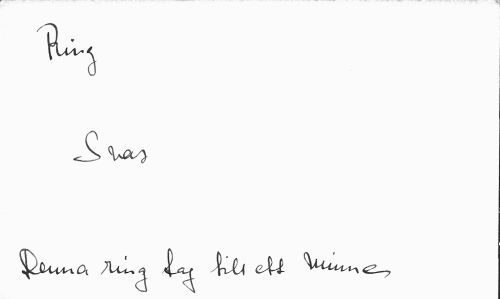 Ring
Svar
Denna ring tag till ett minne